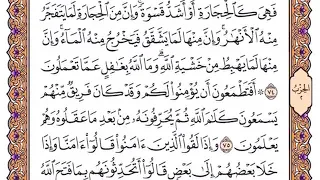 فَهِىَ كَٱلْحِجَارَةِ أَوْ أَشَدُّ قَسْوَةً ۚ وَإِنَّ مِنَ ٱلْحِجَارَةِ لَمَا يَتَفَجَّرُ
مِنْهُ ٱلْأَنْهَٰرُ ۚ وَإِنَّ مِنْهَا لَمَا يَشَّقَّقُ فَيَخْرُجُ مِنْهُ ٱلْمَآءُ ۚ وَإِنَّ
مِنْهَا لَمَا يَهْبِطُ مِنْ خَشْيَةِ ٱللَّهِ ۗ وَمَا ٱللَّهُ بِغَٰفِلٍ عَمَّا تَعْمَلُونَ
٧٤ ۞ أَفَتَطْمَعُونَ أَن يُؤْمِنُوا۟ لَكُمْ وَقَدْ كَانَ فَرِيقٌ مِّنْهُمْ
يَسْمَعُونَ كَلَٰمَ ٱللَّهِ ثُمَّ يُحَرِّفُونَهُۥ مِنۢ بَعْدِ مَا عَقَلُوهُ وَهُمْ
يَعْلَمُونَ ٧٥ وَإِذَا لَقُوا۟ ٱلَّذِينَ ءَامَنُوا۟ قَالُوٓا۟ ءَامَنَّا وَإِذَا
خَلَا بَعْضُهُمْ إِلَىٰ بَعْضٍ قَالُوٓا۟ أَتُحَدِّثُونَهُم بِمَا فَتَحَ ٱللَّهُ
الحزب
٢